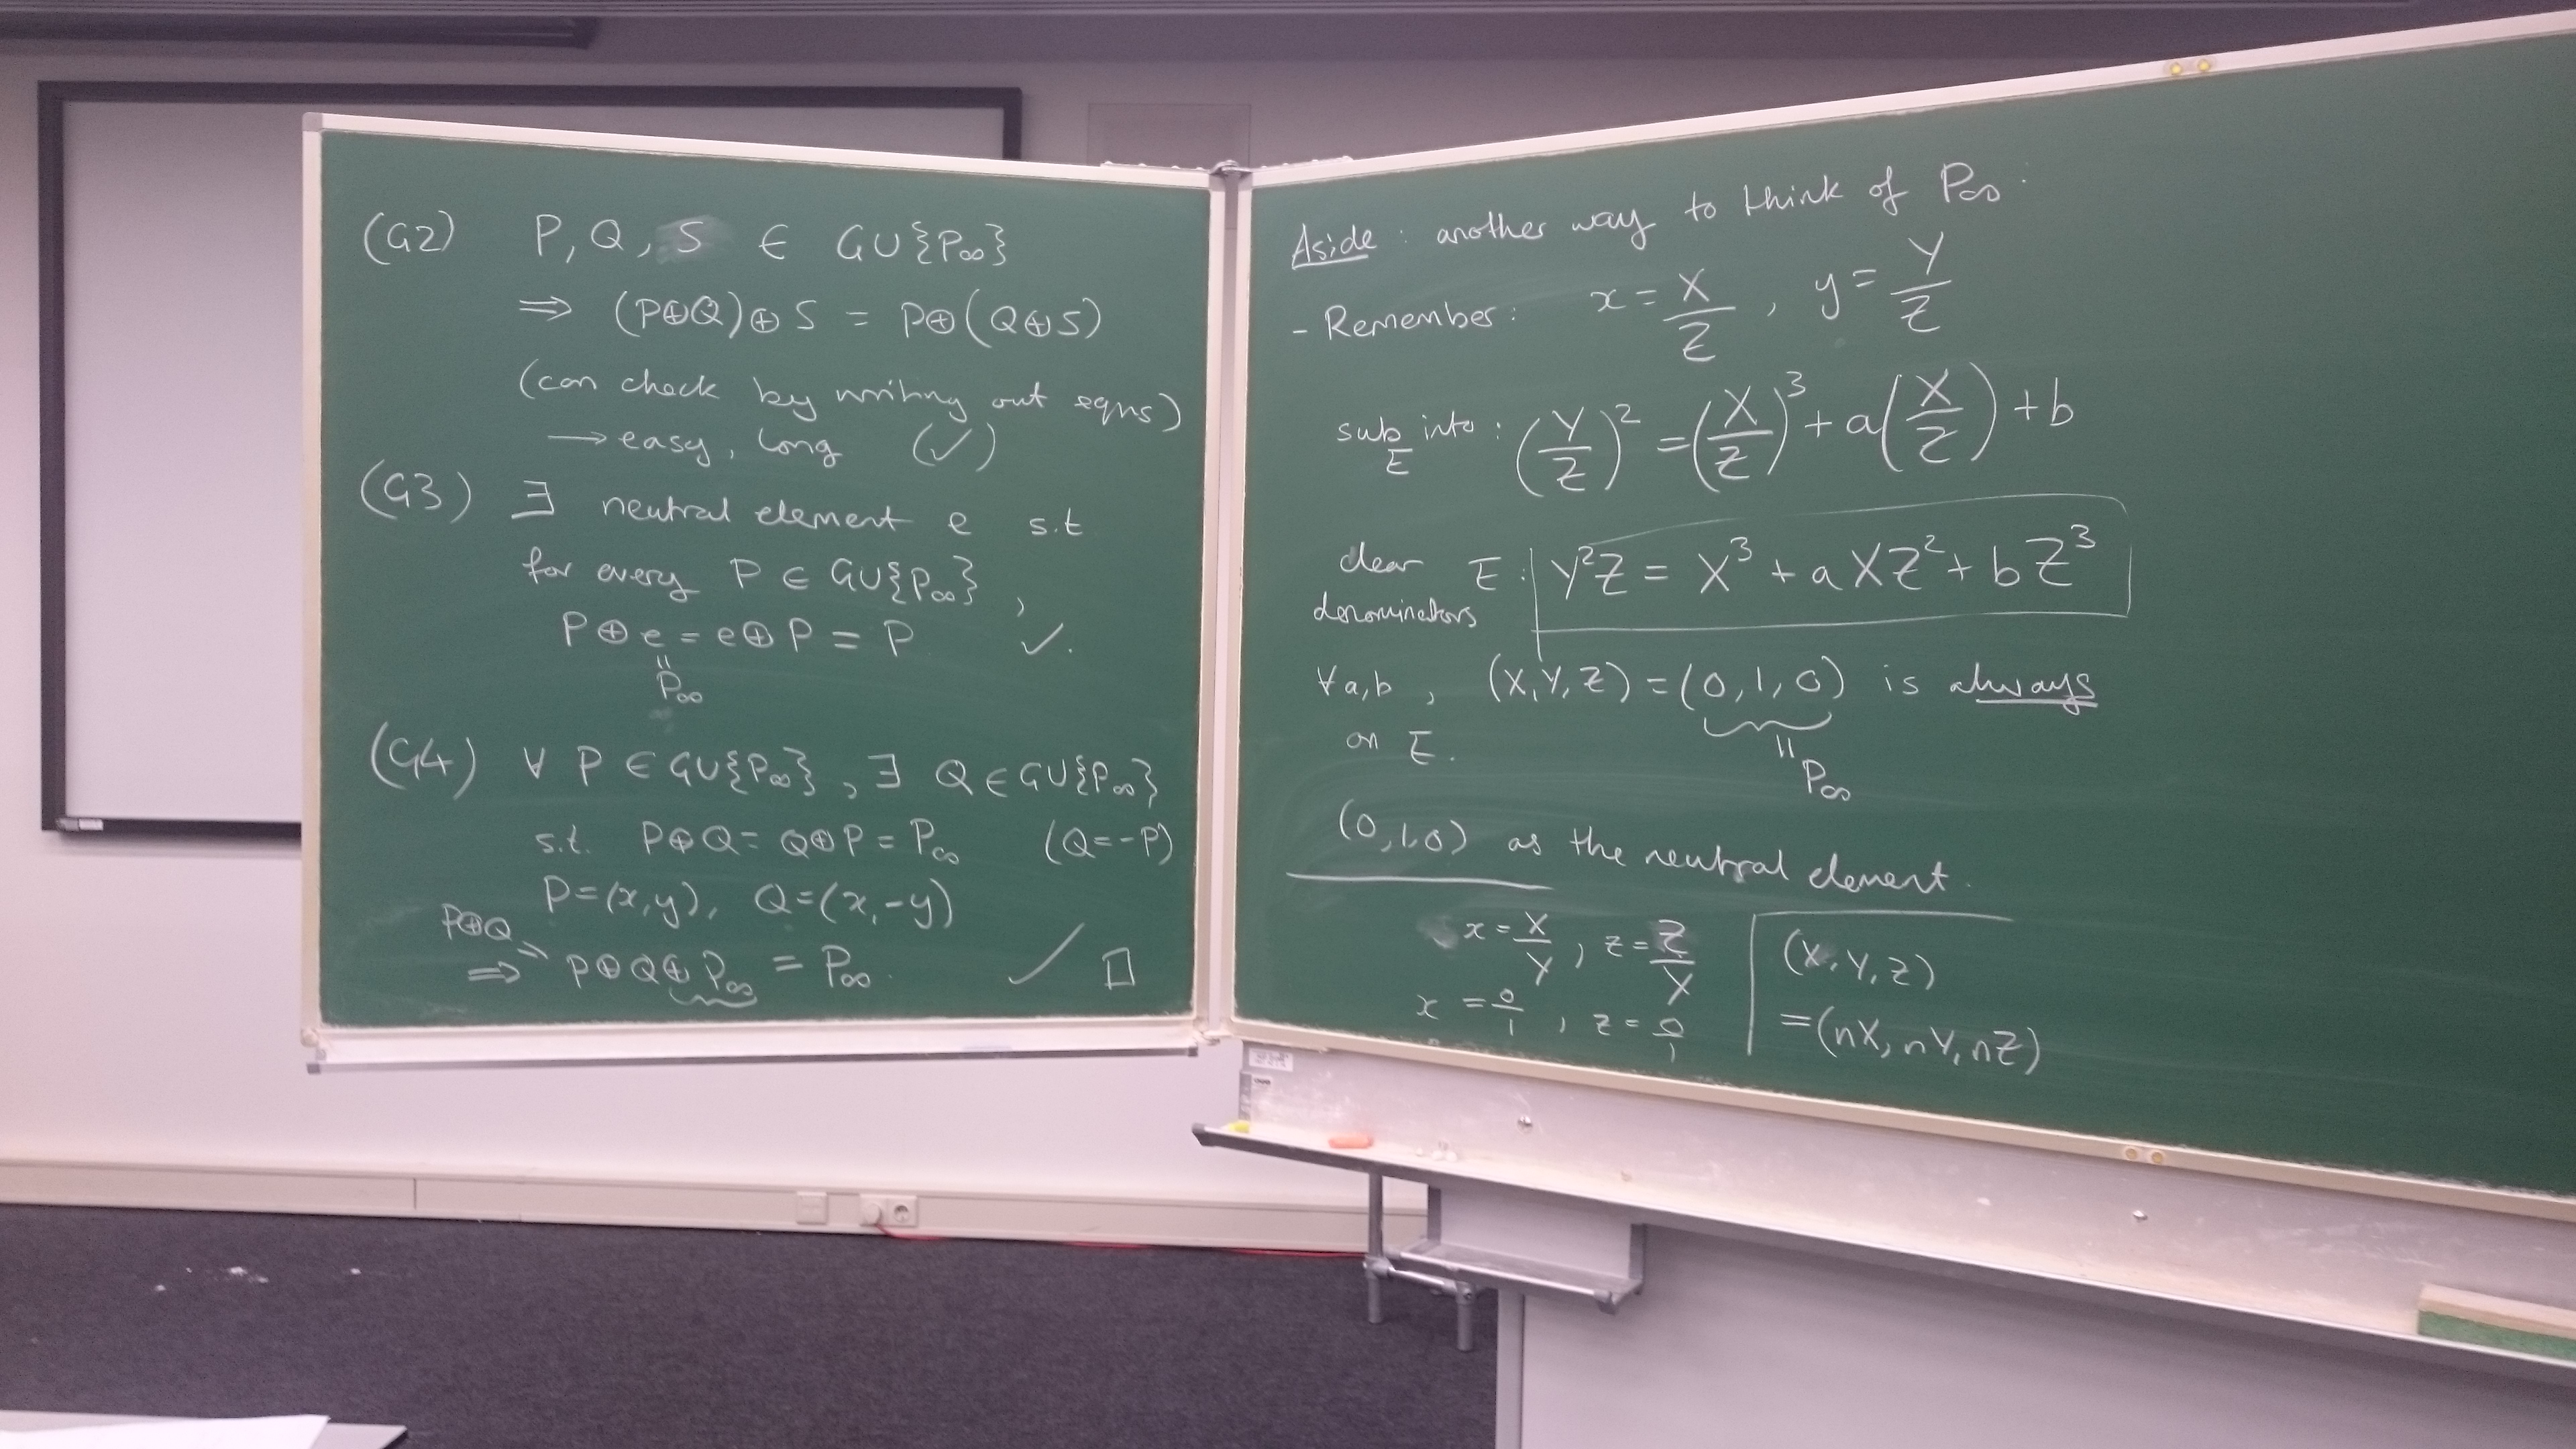 (G2) P, Q, S ∈ G∪{P∞}
⇒ (P⊕Q)⊕S = P⊕(Q⊕S)
(can check by writing out eqns)
→ easy, long (✓)
(G3) ∃ neutral element e s.t
for every P ∈ G∪{P∞},
P⊕e = e⊕P = P ✓.
=
P∞
(G4) ∀ P ∈ G∪{P∞}, ∃ Q ∈ G∪{P∞}
s.t. P⊕Q = Q⊕P = P∞ (Q=-P)
P=(x,y), Q=(x,-y)
P⊕Q =
⇒ P⊕Q⊕P∞ = P∞. ✓ □
Aside: another way to think of P∞:
- Remember: x = X/Z, y = Y/Z
sub into E: (Y/Z)² = (X/Z)³ + a(X/Z) + b
clear denominators E: Y²Z = X³ + aXZ² + bZ³
∀ a,b, (X,Y,Z) = (0,1,0) is always
on E.
=
P∞
(0,1,0) as the neutral element.
x = X/Y, z = Z/Y
x = 0/1, z = 0/1
(X,Y,Z)
=(nX, nY, nZ)